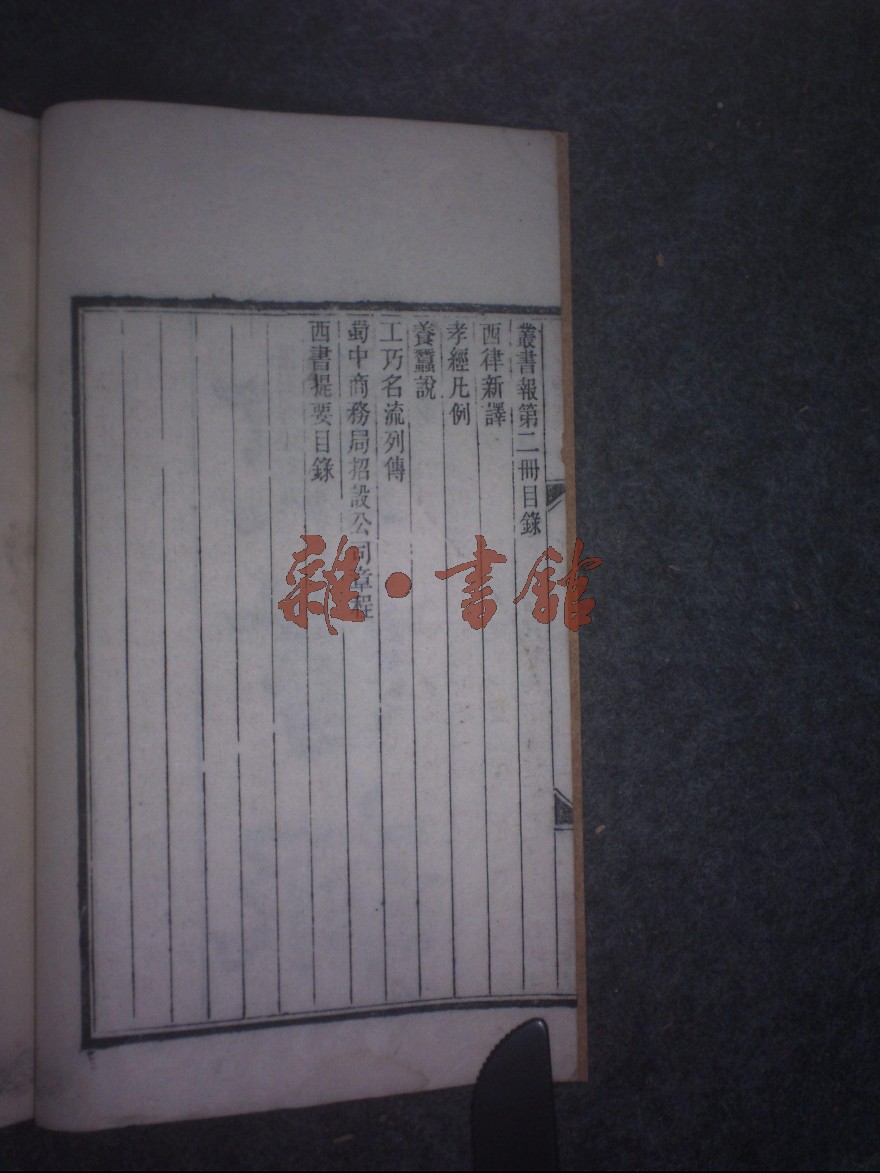 叢書報第二冊目錄
西律新譯
孝經凡例
養蠶說
工巧名流列傳
蜀中商務局招設公司章程
西書提要目錄
雜·書館